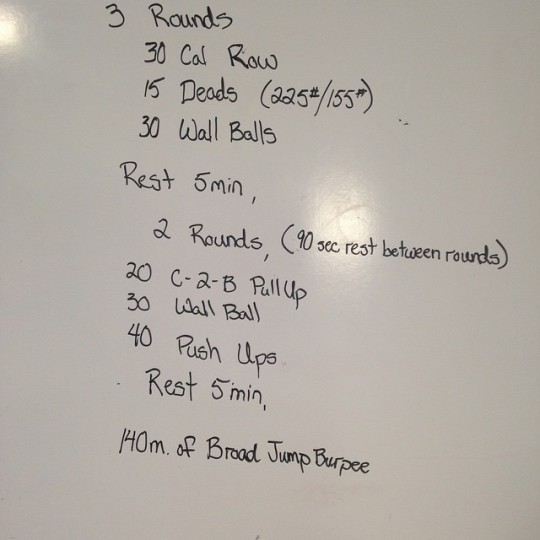 3 Rounds
30 Cal Row
15 Deads (225#/155#)
30 Wall Balls
Rest 5min,
2 Rounds, (90 sec rest between rounds)
20 C-2-B PullUp
30 Wall Ball
40 Push Ups
Rest 5min,
140m. of Broad Jump Burpee